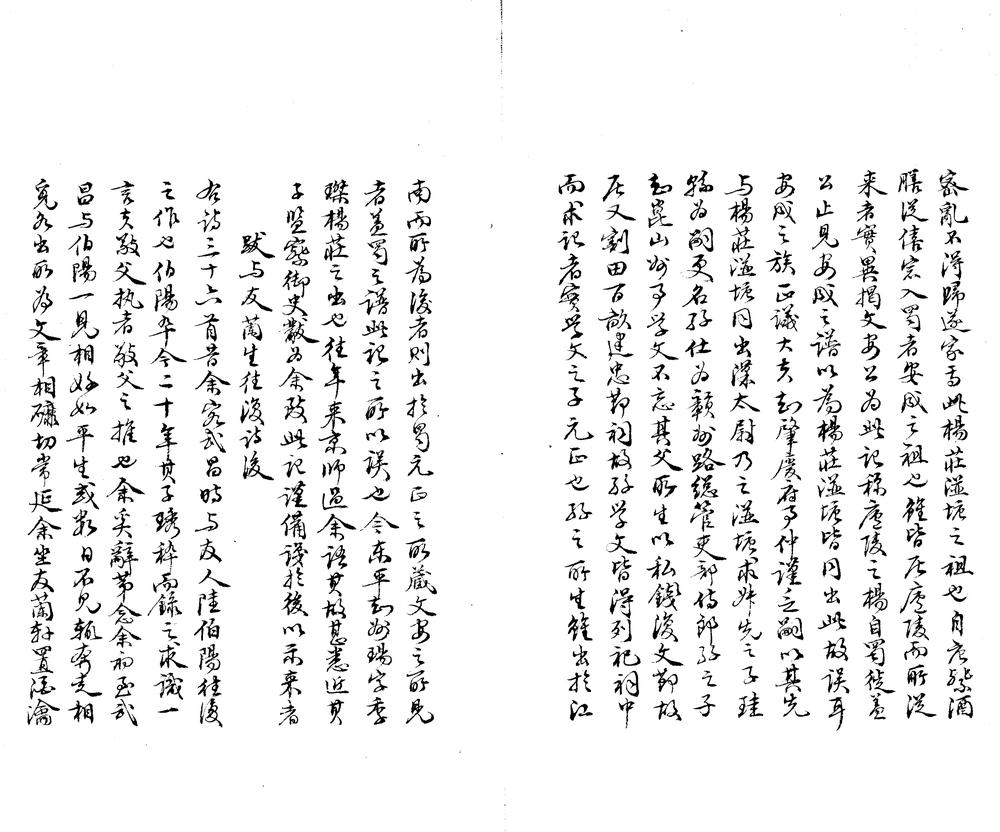 寇亂不得歸遂家焉此楊莊湴塘之祖也自唐祭酒
膳從僖宗入蜀者安成之祖也雖皆居廬陵而所從
來者實異揭文安公為此記稱廬陵之楊自蜀徙蓋
公止見安成之譜以為楊莊湴塘皆同出此故誤耳
安成之族正議大夫知肇慶府事仲謹之嗣以其先
与楊莊湴塘同出漢太尉乃之湴塘求姊先之子珪
孫為嗣更名孫仕為贛州路總管吏部侍郎孫之子
知崑山州事學文不忘其父所生以私錢復文節故
居又割田百畝建忠節祠故孫學文皆得列祀祠中
而求記者實學文之子元正也孫之所生雖出於江
南而所為後者則出於蜀元正之所藏文安之所見
者蓋蜀之譜此記之所以誤也今東平知州瑒字季
琛楊莊之出也往年來京師過余語其故甚悉近其
子監察御史黻为余致此記謹備識於後以示來者
跋与友蘭生往復詩後
右詩三十六首昔余客武昌時与友人陸伯陽往復
之作也伯陽卒今二十年其子琇粹而錄之求識一
言夫敬父執者敬父之推也余奚辭第念余初至武
昌与伯陽一見相好如平生或數日不見輒奔走相
覓各出所为文章相礪切常延余坐友蘭軒置酒瀹